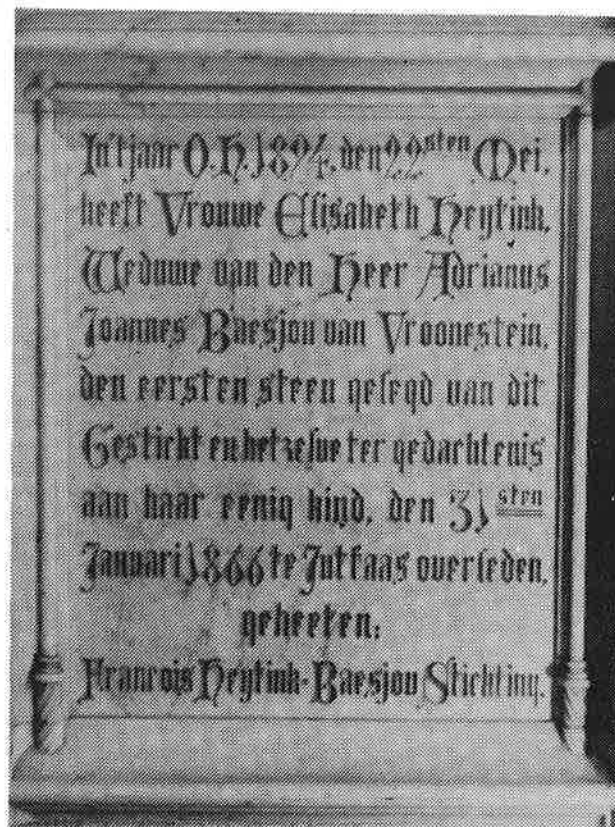 In 't jaar O.H. 1894, den 22sten Mei,
heeft Vrouwe Elisabeth Heytink,
Weduwe van den Heer Adrianus
Joannes Baesjou van Vroonestein,
den eersten steen gelegd van dit
Gesticht en hetzelve ter gedachtenis
aan haar eenig kind, den 31sten
Januari 1866 te Jutfaas overleden,
geheeten:
Francois Heytink-Baesjou Stichting.